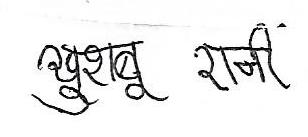 खुशबू रानी